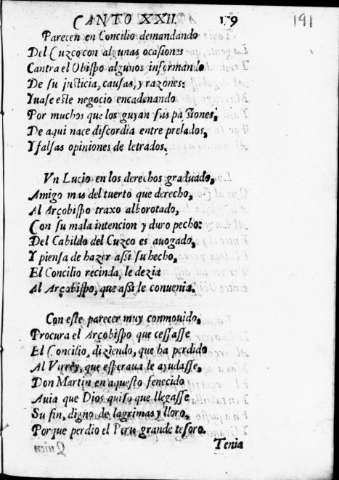 CANTO XXII. 179 191
Parecen en Concilio demandando
Del Cuzco con algunas ocasiones
Cantra el Obispo algunos informando
De su justicia, causas, y razones:
Yuase este negocio encadenando
Por muchos que los guyan sus passiones,
De aqui nace discordia entre prelados,
Y falsas opiniones de letrados.
Vn Lucio en los derechos graduado,
Amigo mas del tuerto que derecho,
Al Arçobispo traxo alborotado,
Con su mala intencion y duro pecho:
Del Cabildo del Cuzco es auogado,
Y piensa de hazer assi su hecho,
El Concilio recinda, le dezia
Al Arçobispo, que assi le conuenia.
Con este parecer muy conmouido,
Procura el Arçobispo que cessasse
El Concilio, diziendo, que ha perdido
Al Virrey, que esperaua le ayudasse,
Don Martin en aquesto fenecido
Auia que Dios quiso que llegasse
Su fin, digno de lagrimas y lloro,
Porque perdio el Peru grande tesoro.
Tenia